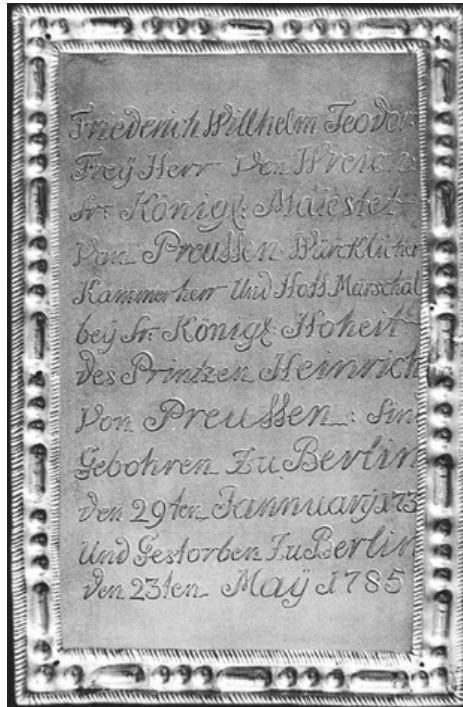 Friederich Willhelm Teodor:
Freÿ Herr Von Wreich
Sr: Königl: Maiestet
Von Preussen Würcklicher
Kammerherr Und Hoff Marschal
beÿ Sr: Königl: Hoheit
des Printzen Heinrich
Von Preussen: Sin
Gebohren Zu Berlin
den 29ten Jannuarÿ 173
Und Gestorben Zu Berlin
den 23ten Maÿ 1785